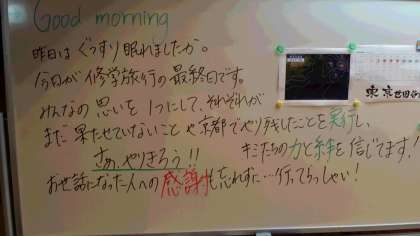 Good morning
昨日は ぐっすり眠れましたか。
今日が修学旅行の最終日です。
みんなの思いを1つにして、それぞれが
まだ果たせていないことや京都でやり残したことを実行し、
さぁ、やりきろう!! キミたちの力と絆を信じてます!
お世話になった人への感謝も忘れずに…行ってらっしゃい!
東京世田谷